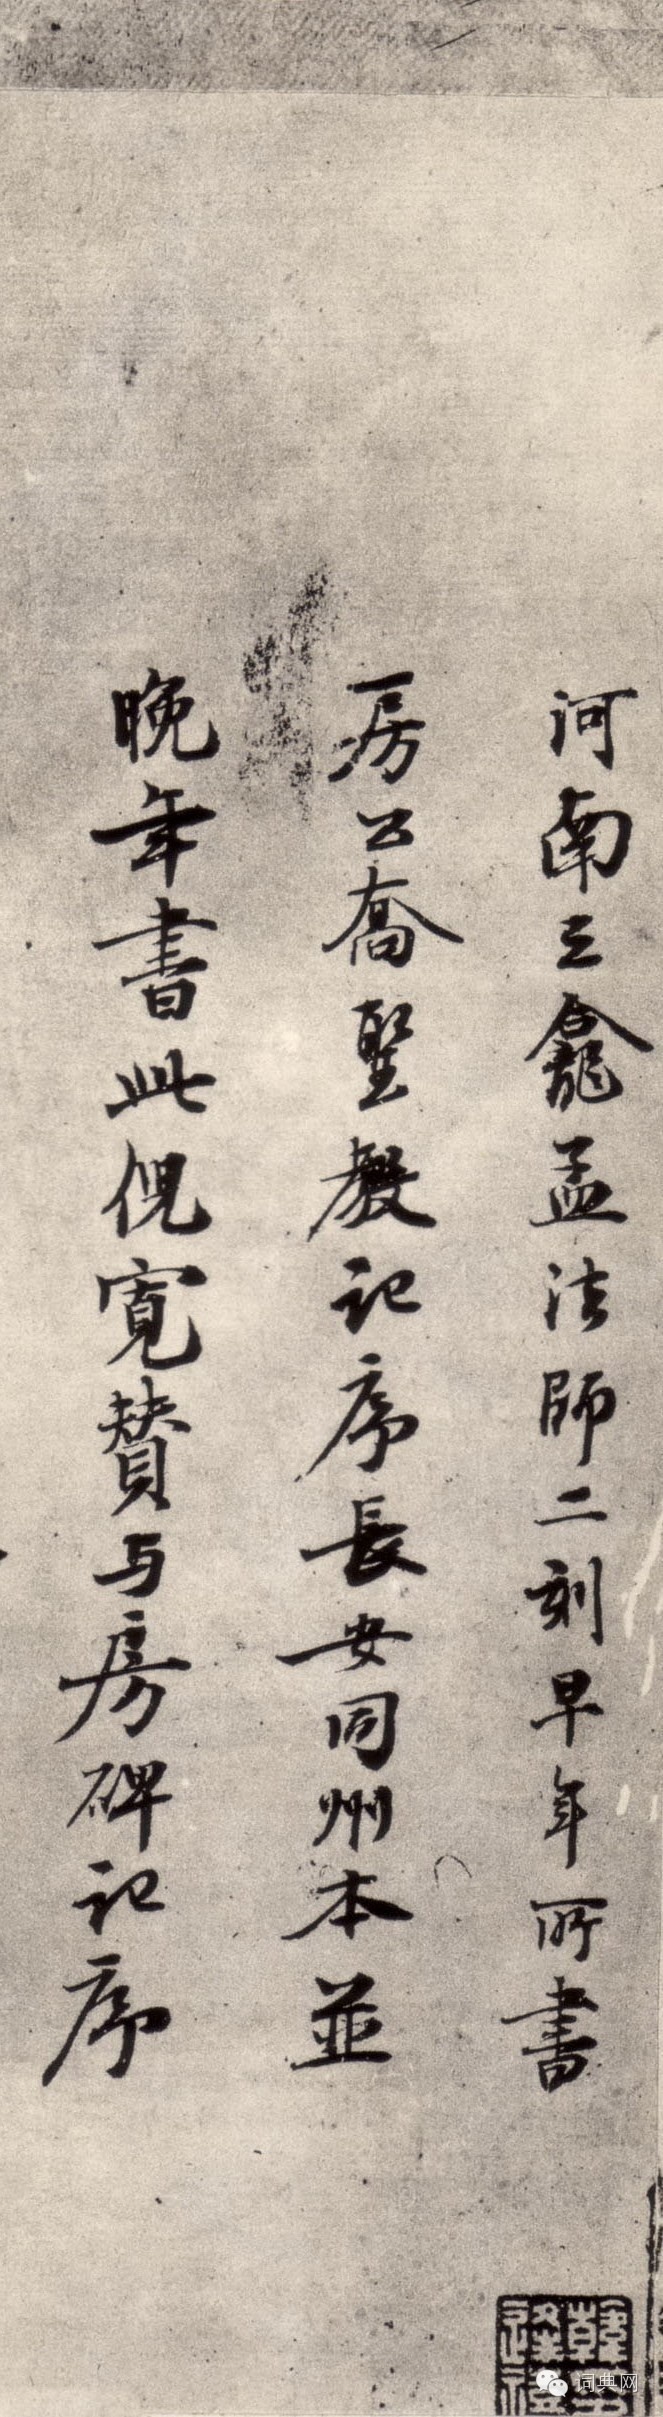 河南三龕孟法師二刻早年所書
房公喬聖教記序長安同州本並
晚年書此倪寬贊与房碑記序
词典网